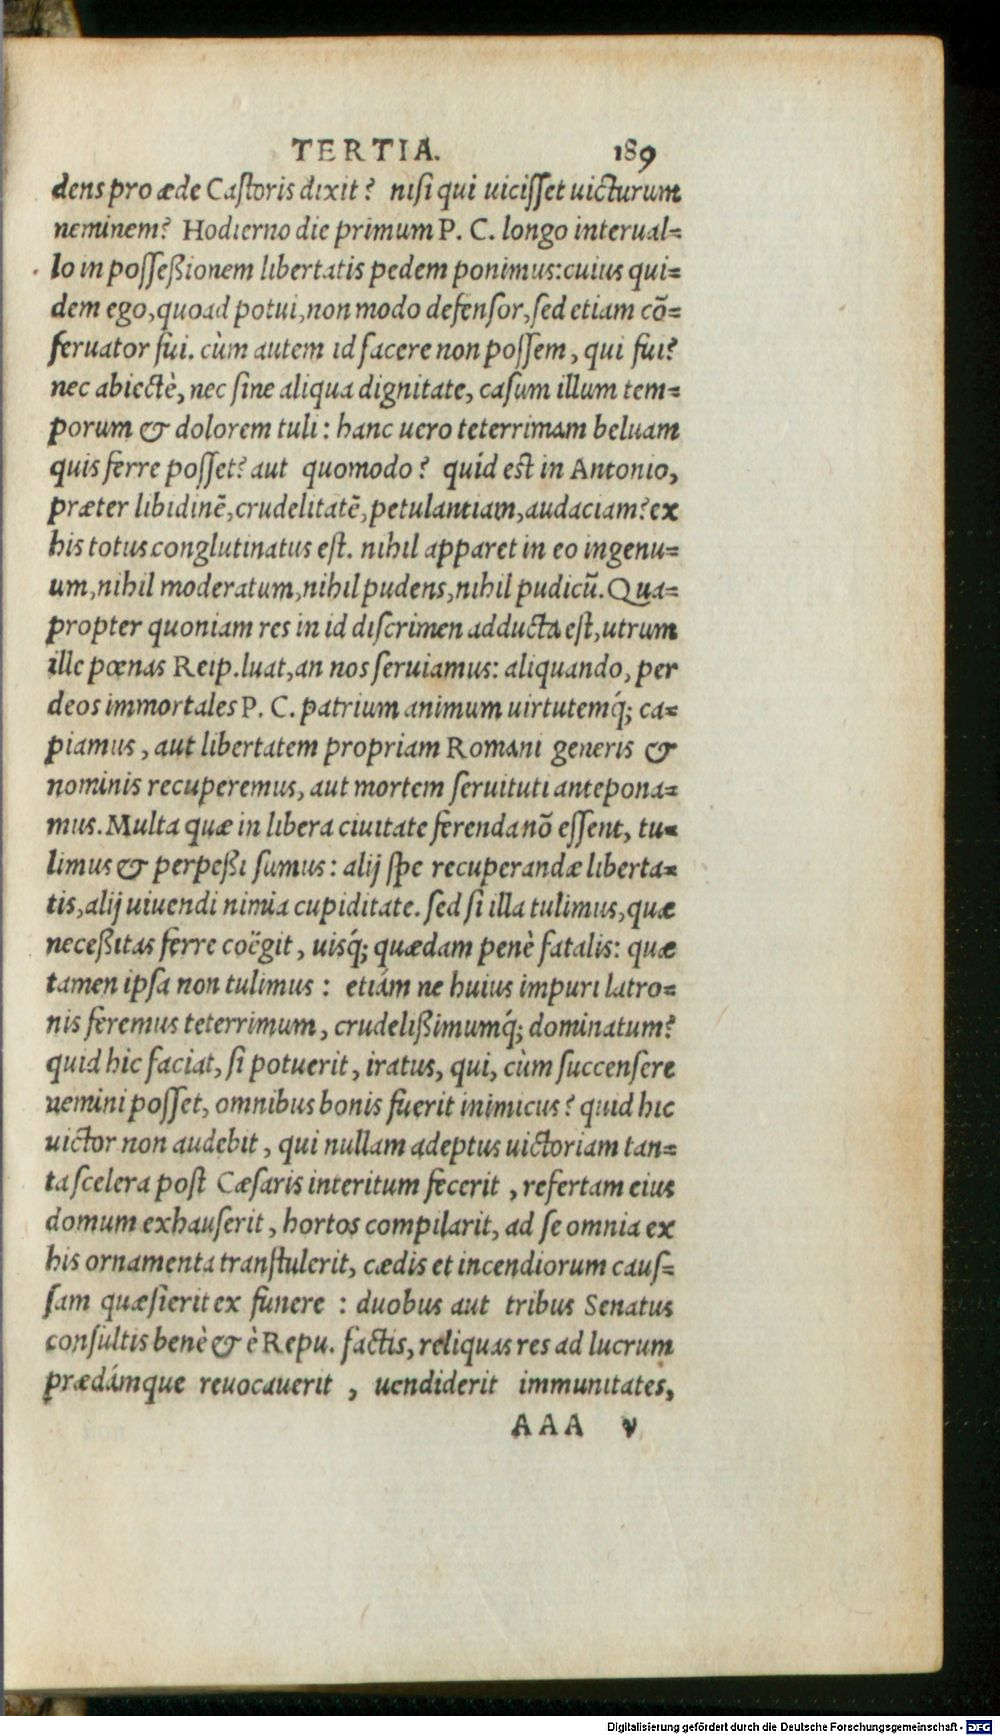 TERTIA. 189
dens pro æde Castoris dixit? nisi qui uicisset uicturum
neminem? Hodierno die primum P. C. longo interual=
lo in possessionem libertatis pedem ponimus: cuius qui=
dem ego, quoad potui, non modo defensor, sed etiam cō=
seruator fui. cùm autem id facere non possem, qui fui?
nec abiectè, nec sine aliqua dignitate, casum illum tem=
porum & dolorem tuli: hanc uero teterrimam beluam
quis ferre posset? aut quomodo? quid est in Antonio,
præter libidinē, crudelitatē, petulantiam, audaciam? ex
his totus conglutinatus est. nihil apparet in eo ingenu=
um, nihil moderatum, nihil pudens, nihil pudicū. Qua=
propter quoniam res in id discrimen adducta est, utrum
ille pœnas Reip. luat, an nos seruiamus: aliquando, per
deos immortales P. C. patrium animum uirtutemq́; ca=
piamus, aut libertatem propriam Romani generis &
nominis recuperemus, aut mortem seruituti antepona=
mus. Multa quæ in libera ciuitate ferenda nō essent, tu=
limus & perpeßi sumus: alij spe recuperandæ liberta=
tis, alij uiuendi nimia cupiditate. sed si illa tulimus, quæ
neceßitas ferre coëgit, uisq́; quædam penè fatalis: quæ
tamen ipsa non tulimus: etiám ne huius impuri latro=
nis feremus teterrimum, crudelißimumq́; dominatum?
quid hic faciat, si potuerit, iratus, qui, cùm succensere
nemini posset, omnibus bonis fuerit inimicus? quid hic
uictor non audebit, qui nullam adeptus uictoriam tan=
ta scelera post Cæsaris interitum fecerit, refertam eius
domum exhauserit, hortos compilarit, ad se omnia ex
his ornamenta transtulerit, cædis et incendiorum caus=
sam quæsierit ex funere: duobus aut tribus Senatus
consultis benè & è Repu. factis, reliquas res ad lucrum
prædámque reuocauerit, uendiderit immunitates,
AAA v
Digitalisierung gefördert durch die Deutsche Forschungsgemeinschaft - DFG